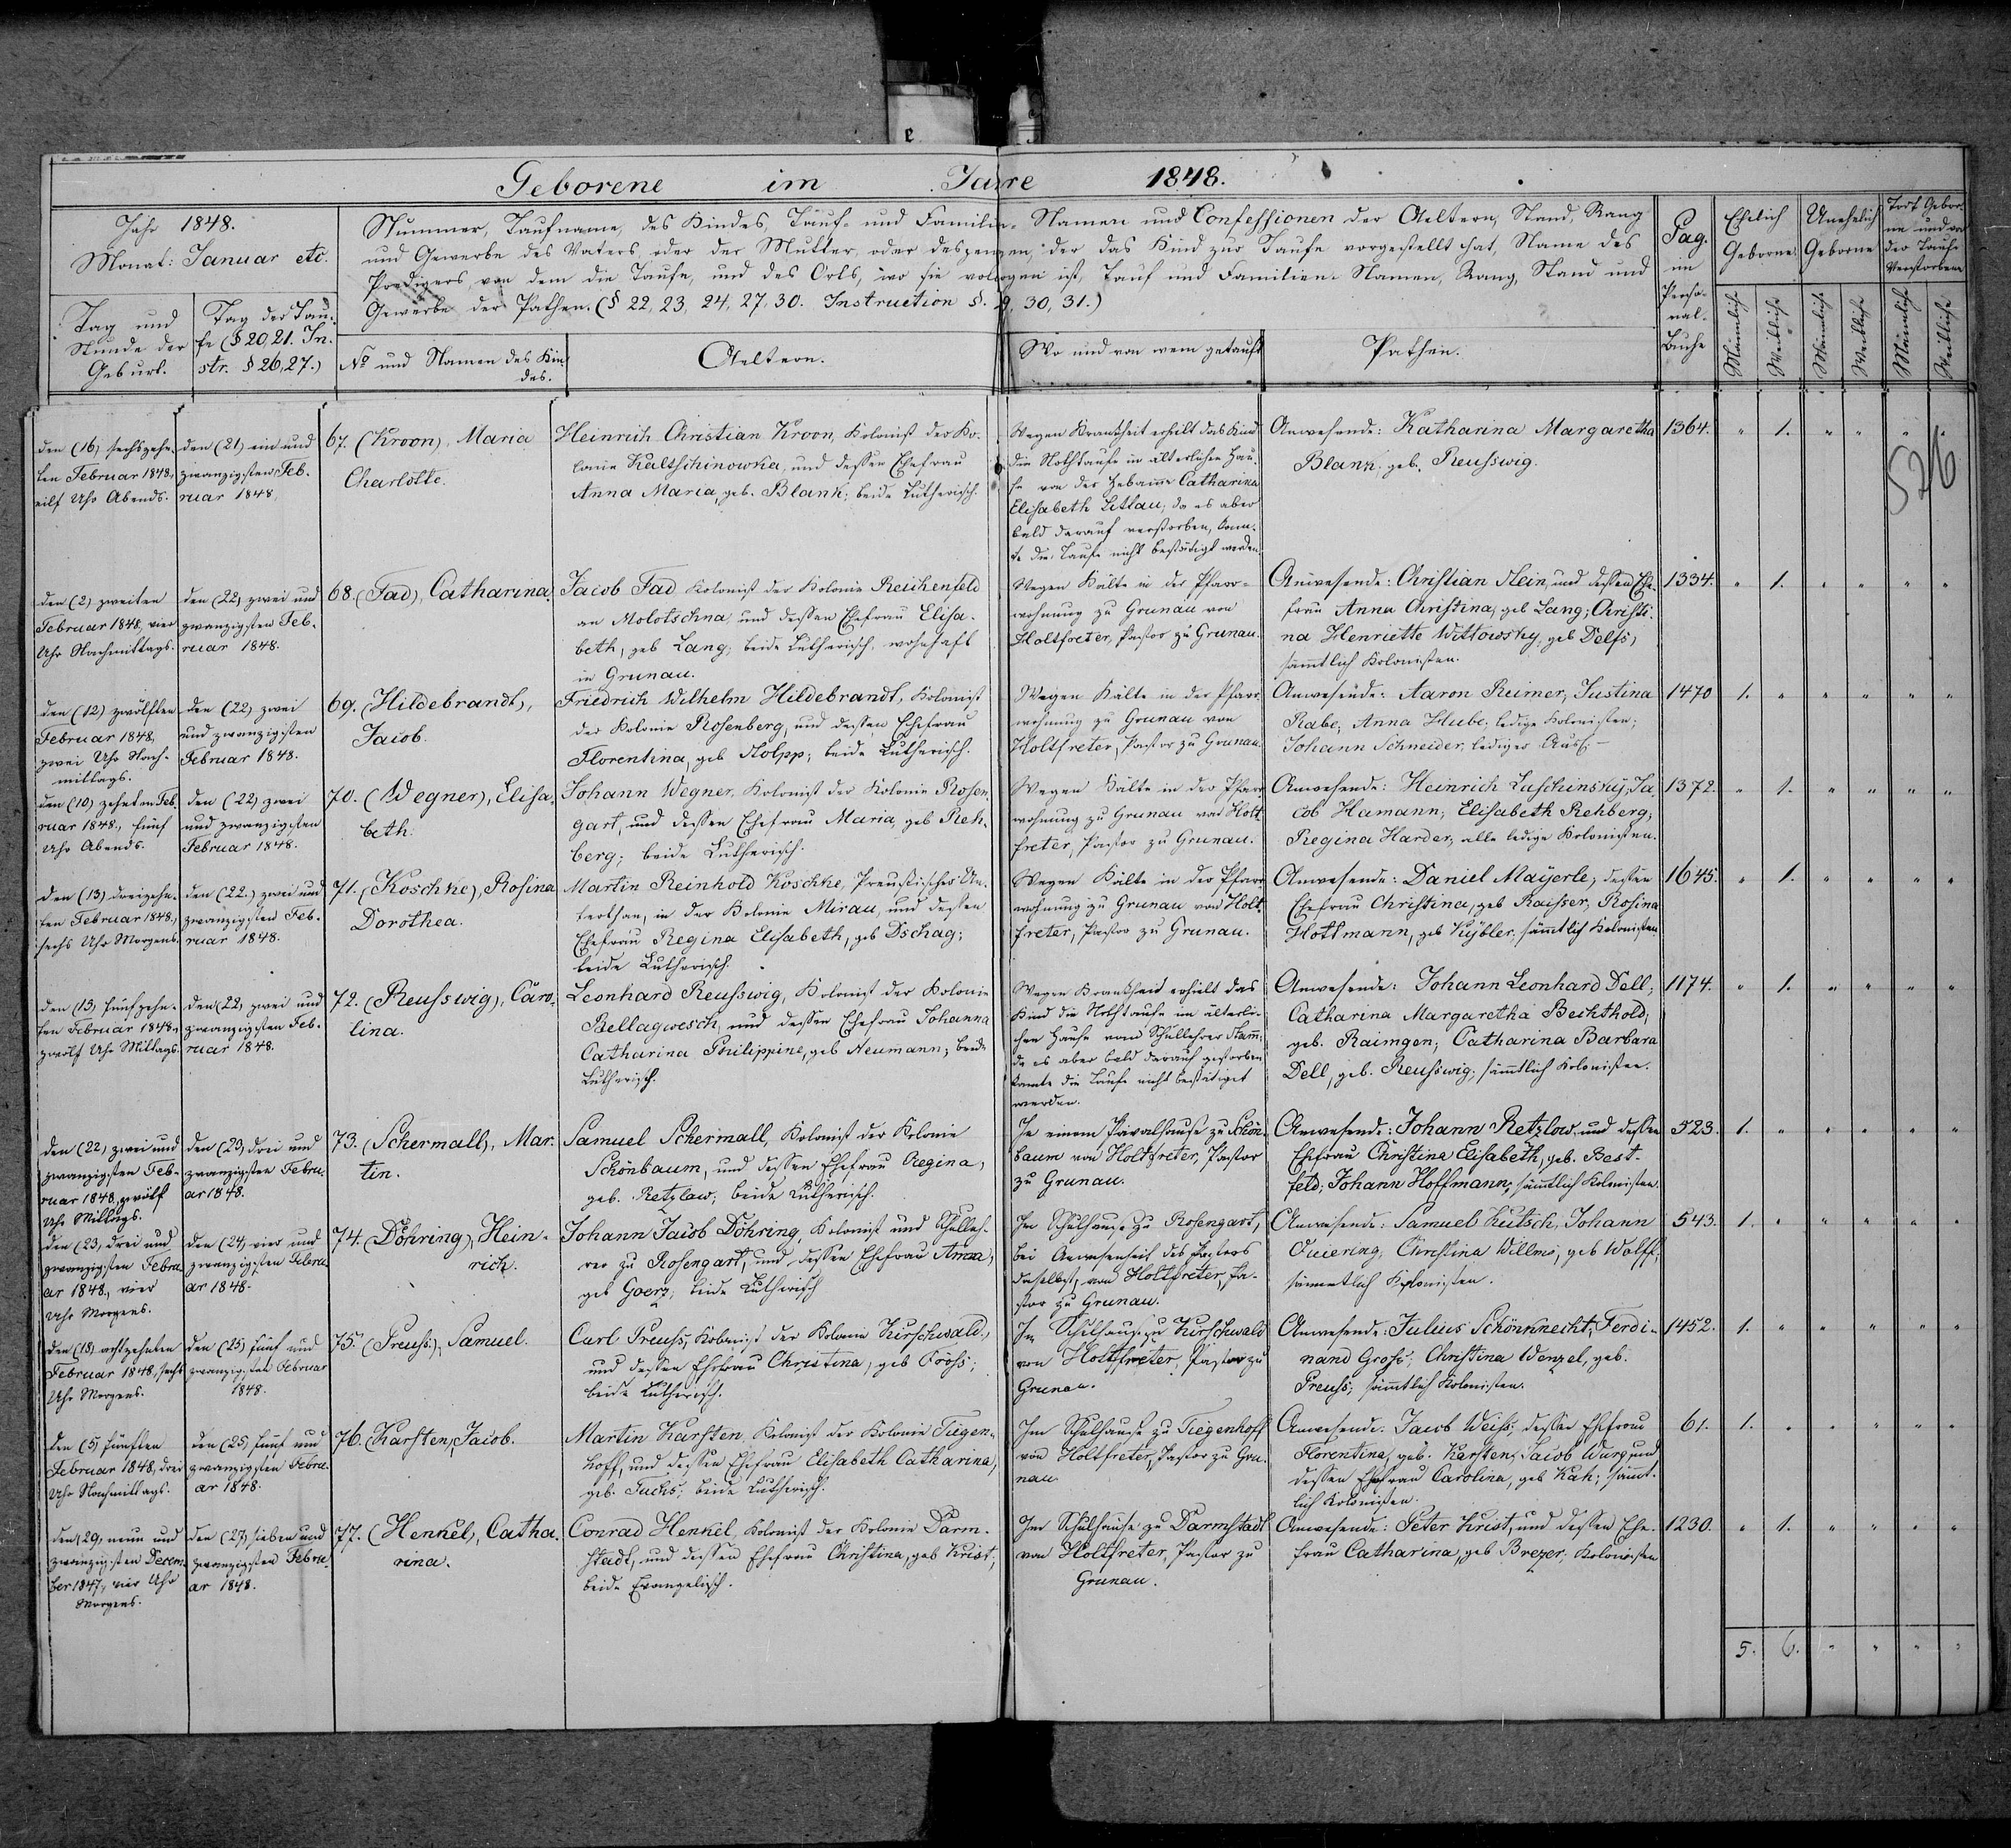 Geborene im Jahre 1848.
Jahr 1848.
Monat: Januar etc.
Tag und
Stunde der
Geburt.
Tag der Tau-
fe (§ 20, 21. In-
str. § 26, 27.)
Nummer, Taufname, des Kindes, Tauf- und Familien-Namen und Confessionen der Aeltern, Stand, Rang
und Gewerbe des Vaters oder der Mutter, oder desjenigen, der das Kind zur Taufe vorgestellt hat, Name des
Predigers von dem die Taufe, und des Orts, wo sie vollzogen ist, Tauf und Familien-Namen, Rang, Stand und
Gewerbe der Pathen. (§ 22, 23, 24, 27, 30. Instruction §. 9, 30, 31.)
No und Namen des Kin-
des.
Aeltern.
Wo und von wem getauft
Pathen.
Pag.
im
Perso-
nal-
Buche
Ehelich
Geborne
Unehelich
Geborne
Todt Gebor-
ne und vor
der Taufe
Verstorbene
Männlich
Weiblich
Männlich
Weiblich
Männlich
Weiblich
526
den (16) sechszehn-
ten Februar 1848,
eilf Uhr Abends.
den (21) ein und
zwanzigsten Feb-
ruar 1848.
67. (Kroon), Maria
Charlotte.
Heinrich Christian Kroon, Kolonist der Ko-
lonie Kaltschinowka, und dessen Ehefrau
Anna Maria, geb. Blank; beide Lutherisch.
Wegen Krankheit erhielt das Kind
die Nothtaufe im älterlichen Hau-
se von der Hebamme Catharina
Elisabeth Letlau; da es aber
bald darauf verstorben, konn-
te die Taufe nicht bestätigt werden.
Anwesende: Katharina Margaretha
Blank geb. Reusswig.
1364. " 1. " " " "
den (2) zweiten
Februar 1848, vier
Uhr Nachmittags.
den (22) zwei und
zwanzigsten Feb-
ruar 1848.
68. (Fad), Catharina.
Jacob Fad Kolonist der Kolonie Reichenfeld
an Molotschna, und dessen Ehefrau Elisa-
beth, geb Lang; beide Lutherisch, wohnhaft
in Grunau.
Wegen Kälte in der Pfarr-
wohnung zu Grunau von
Holtfreter, Pastor zu Grunau.
Anwesende: Christian Stein, und dessen Ehe-
frau Anna Christina, geb Lang; Christi-
na Henriette Wittowsky, geb Delfs,
sämmtlich Kolonisten.
1334. " 1. " " " "
den (12) zwölften
Februar 1848,
zwei Uhr Nach-
mittags.
den (22) zwei
und zwanzigsten
Februar 1848.
69. (Hildebrandt),
Jacob.
Friedrich Wilhelm Hildebrandt, Kolonist
der Kolonie Rosenberg, und dessen Ehefrau
Florentina, geb Stolpp; beide Lutherisch.
Wegen Kälte in der Pfarr-
wohnung zu Grunau von
Holtfreter, Pastor zu Grunau.
Anwesende: Aaron Reimer, Justina
Rabe; Anna Hube; ledige Kolonisten;
Johann Schneider, lediger
1470 1. " " " " "
den (10) zehnten Feb-
ruar 1848., fünf
Uhr Abends.
den (22) zwei
und zwanzigsten
Februar 1848.
70. (Wegner), Elisa-
beth.
Johann Wegner, Kolonist der Kolonie Rosen-
gart, und dessen Ehefrau Maria, geb Reh-
berg; beide Lutherisch.
Wegen Kälte in der Pfarr-
wohnung zu Grunau von Holt-
freter, Pastor zu Grunau.
Anwesende: Heinrich Luschinsky; Ja-
cob Hamann; Elisabeth Rehberg;
Regina Harder, alle ledige Kolonisten.
1372. " 1. " " " "
den (13) dreizehn-
ten Februar 1848,
sechs Uhr Morgens.
den (22.) zwei und
zwanzigsten Feb-
ruar 1848.
71. (Koschke), Rosina
Dorothea.
Martin Reinhold Koschke, Preussischer Un-
terthan, in der Kolonie Mirau, und dessen
Ehefrau Regina Elisabeth, geb Dschag;
beide Lutherisch.
Wegen Kälte in der Pfarr-
wohnung zu Grunau von Holt-
freter, Pastor zu Grunau.
Anwesende: Daniel Mayerle, dessen
Ehefrau Christina, geb Raisser; Rosina
Hottmann, geb Kybler; sämmtlich Kolonisten
1645. " 1. " " " "
den (15) fünfzehn-
ten Februar 1848.,
zwölf Uhr Mittags.
den (22) zwei und
zwanzigsten Feb-
ruar 1848.
72. (Reusswig), Caro-
lina.
Leonhard Reusswig, Kolonist der Kolonie
Bellagwesch, und dessen Ehefrau Johanna
Catharina Philippine, geb Neumann; beide
Lutherisch.
Wegen Krankheit erhielt das
Kind die Nothtaufe im älterli-
chen Hause vom Schullehrer Stamm;
da es aber bald darauf gestorben
konnte die Taufe nicht bestätiget
werden.
Anwesende: Johann Leonhard Dell;
Catharina Margaretha Beshthold,
geb. Raimgen; Catharina Barbara
Dell, geb. Reusswig; sämmtlich Kolonisten.
1174. " 1. " " " "
den (22) zwei und
zwanzigsten Feb-
ruar 1848, zwölf
Uhr Mittags.
den (23) drei und
zwanzigsten Febru-
ar 1848.
73. (Schermall), Mar-
tin.
Samuel Schermall, Kolonist der Kolonie
Schönbaum, und dessen Ehefrau Regina,
geb. Retzlaw; beide Lutherisch.
In einem Privathause zu Schön-
baum von Holtfreter, Pastor
zu Grunau.
Anwesende: Johann Retzlow und dessen
Ehefrau Christine Elisabeth, geb. Best-
feld; Johann Hoffmann; sämmtlich Kolonisten.
523. 1. " " " " "
den (23) drei und
zwanzigsten Febru-
ar 1848., vier
Uhr Morgens.
den (24) vier und
zwanzigsten Febru-
ar 1848.
74. (Döhring), Hein-
rich.
Johann Jacob Döhring, Kolonist und Schulleh-
rer zu Rosengart, und dessen Ehefrau Anna,
geb Goerz; beide Lutherisch
Im Schulhause zu Rosengart,
bei Anwesenheit des Pastors
daselbst, von Holtfreter, Pa-
stor zu Grunau.
Anwesende: Samuel Kutsch, Johann
Quiering; Christina Willms, geb Wolff;
sämmtlich Kolonisten.
543. 1. " " " " "
den (18) achtzehnten
Februar 1848, sechs
Uhr Morgens.
den (25) fünf und
zwanzigsten Februar
1848.
75. (Preuss), Samuel.
Carl Preuss, Kolonist der Kolonie Kirschwald,
und dessen Ehefrau Christina, geb Fööss;
beide Lutherisch.
Im Schulhause zu Kirschwald
von Holtfreter, Pastor zu
Grunau.
Anwesende: Julius Schönknecht; Ferdi-
nand Gross; Christina Wenzel, geb.
Preuss; sämmtlich Kolonisten.
1452. 1. " " " " "
den (5) fünften
Februar 1848, drei
Uhr Nachmittags.
den (25) fünf und
zwanzigsten Febru-
ar 1848.
76. (Karsten), Jacob.
Martin Karsten, Kolonist der Kolonie Tiegen-
hoff, und dessen Ehefrau Elisabeth Catharina,
geb. Fuchs; beide Lutherisch.
Im Schulhause zu Tiegenhoff
von Holtfreter, Pastor zu Gru-
nau.
Anwesende. Jacob Weiss; dessen Ehefrau
Florentina, geb. Karsten; Jacob Wurg und
dessen Ehefrau Carolina, geb Kah; sämmt-
lich Kolonisten.
61. 1. " " " " "
den (29) neun und
zwanzigsten Decem-
ber 1847, vier Uhr
Morgens.
den (27) sieben und
zwanzigsten Febru-
ar 1848.
77. (Henkel), Catha-
rina.
Conrad Henkel, Kolonist der Kolonie Darm-
stadt, und dessen Ehefrau Christina, geb Krist,
beide Evangelisch.
Im Schulhause zu Darmstadt
von Holtfreter, Pastor zu
Grunau.
Anwesende: Peter Krist, und dessen Ehe-
frau Catharina, geb Brezer; Kolonisten
1230. " 1. " " " "
5. 6. " " " "